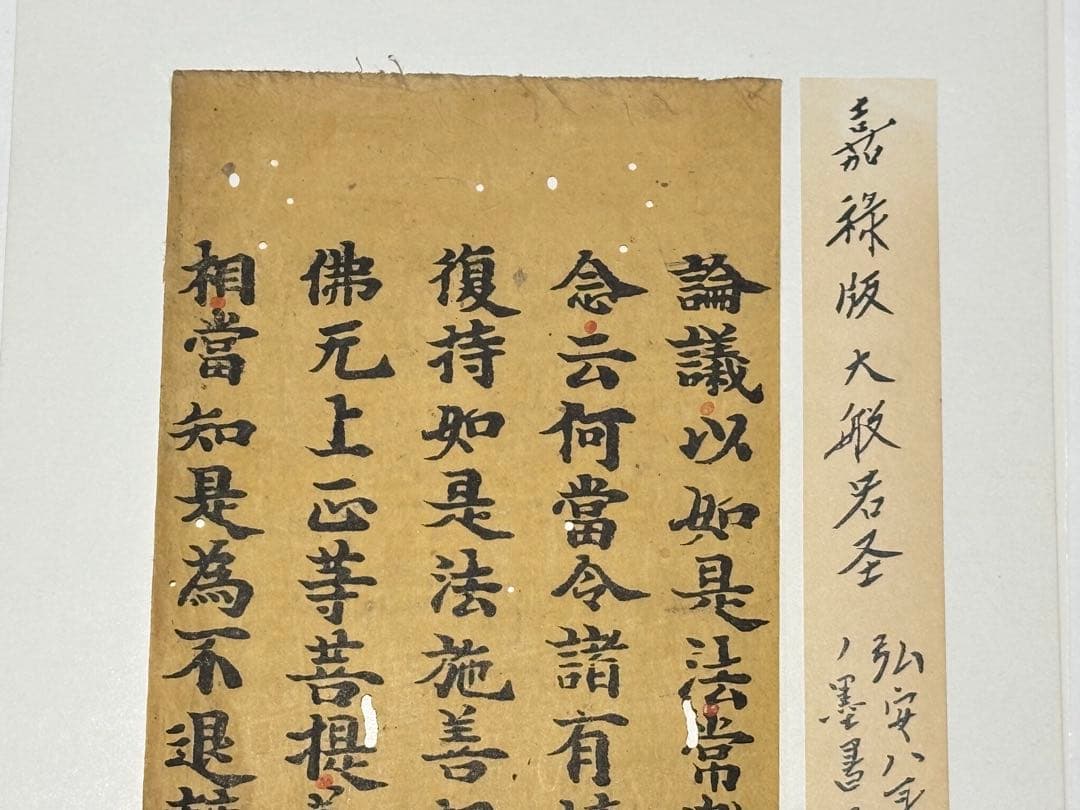 嘉禄版 大般若圣
弘安八年
ノ墨書
論議以如是法常
念云何當令諸有
復持如是法施善
佛无上正等菩提
相當知是為不退